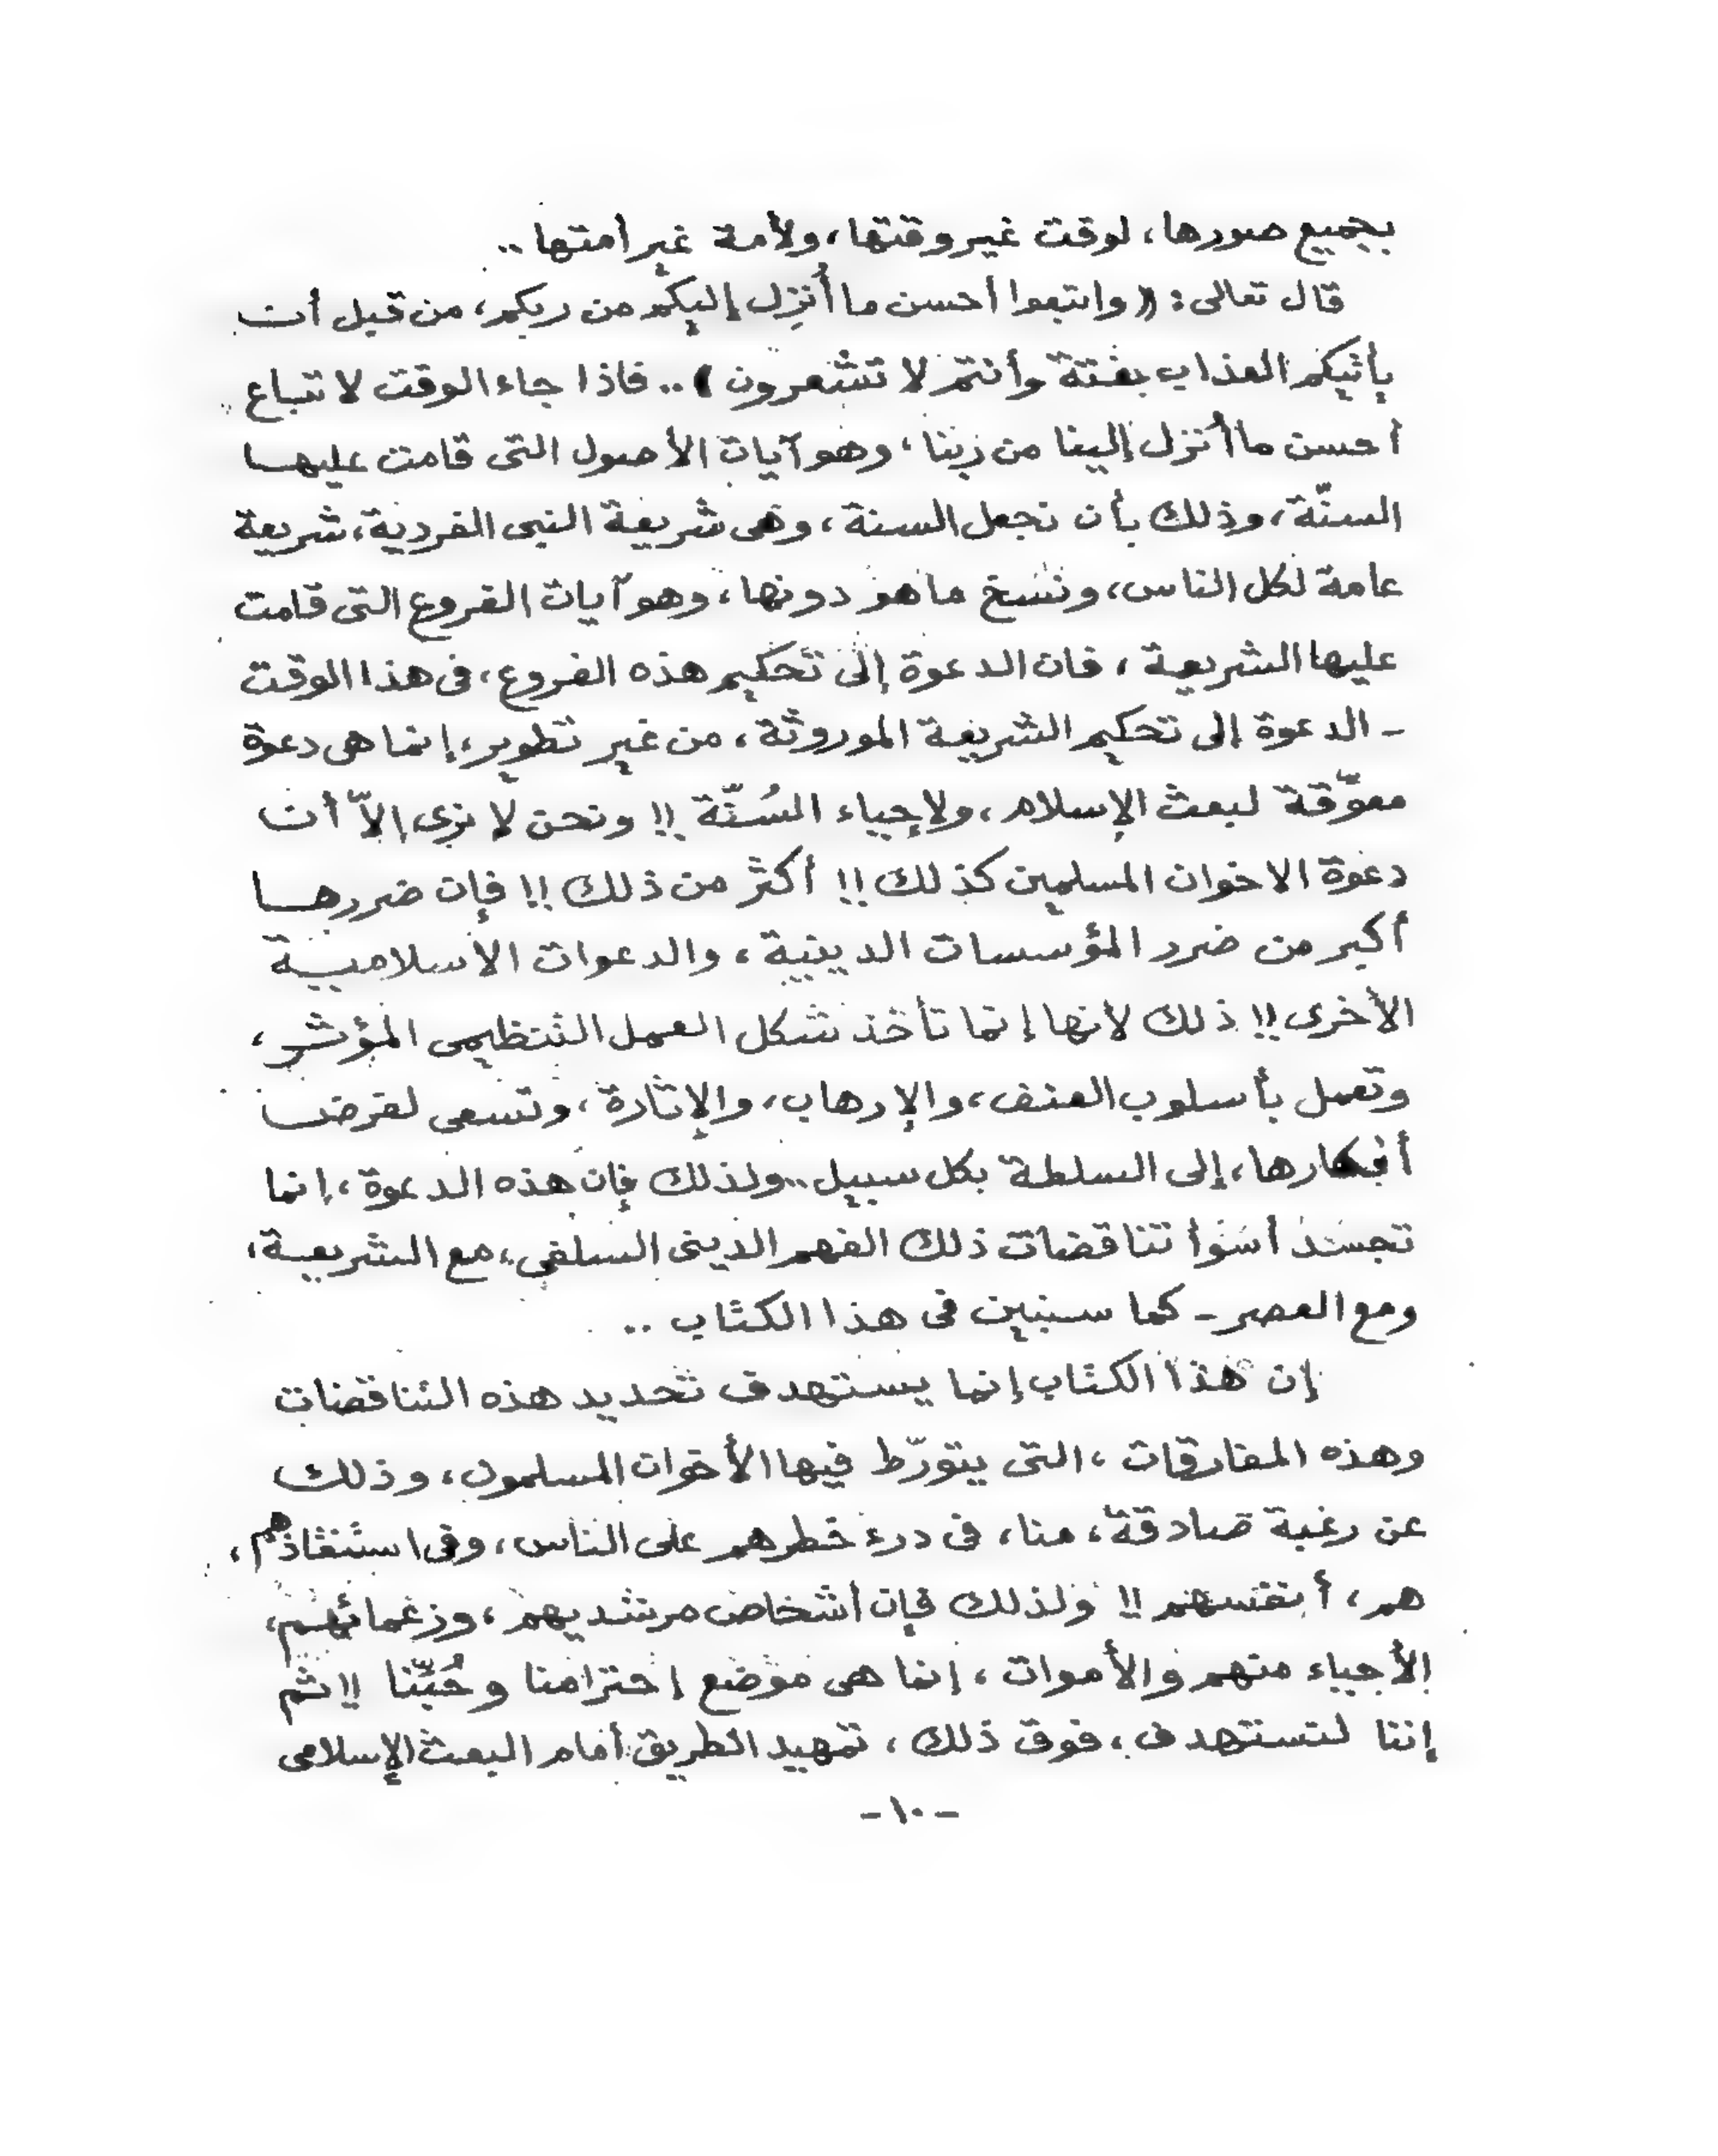 بجميع صورها، لوقت غير وقتها، ولأمة غير أمتها ..
قال تعالى: (( واتبعوا أحسن ما أُنزِل إليكم من ربكم، من قبل أن
يأتيكم العذاب بغتة وأنتم لا تشعرون )) .. فاذا جاء الوقت لاتباع
أحسن ما أُنزل إلينا من ربنا، وهو آيات الأصول التى قامت عليها
السنّة، وذلك بأن نجعل السنة، وهى شريعة النبى الفردية، شريعة
عامة لكل الناس، وننسخ ما هو دونها، وهو آيات الفروع التى قامت
عليها الشريعة، فان الدعوة إلى تحكيم هذه الفروع، فى هذا الوقت
- الدعوة إلى تحكيم الشريعة الموروثة، من غير تطوير، إنما هى دعوة
معوّقة لبعث الإسلام، ولإحياء السُنّة !! ونحن لا نرى إلاّ أن
دعوة الاخوان المسلمين كذلك !! أكثر من ذلك !! فإن ضررها
أكبر من ضرر المؤسسات الدينية، والدعوات الاسلامية
الأخرى !! ذلك لأنها إنما تأخذ شكل العمل التنظيمى المؤثر،
وتعمل بأسلوب العنف، والإرهاب، والإثارة، وتسعى لفرض
أفكارها، إلى السلطة بكل سبيل .. ولذلك فإن هذه الدعوة، إنما
تجسّد أسوأ تناقضات ذلك الفهم الدينى السلفى، مع الشريعة،
ومع العصر - كما سنبين فى هذا الكتاب ..
إن هذا الكتاب إنما يستهدف تحديد هذه التناقضات
وهذه المفارقات، التى يتورّط فيها الأخوان المسلمون، وذلك
عن رغبة صادقة، منا، فى درء خطرهم على الناس، وفى استنقاذهم،
هم، أنفسهم !! ولذلك فإن أشخاص مرشديهم، وزعمائهم،
الأحياء منهم والأموات، إنما هى موضع إحترامنا وحُبّنا !! ثم
إننا لنستهدف، فوق ذلك، تمهيد الطريق أمام البعث الإسلامى
- ١٠ -